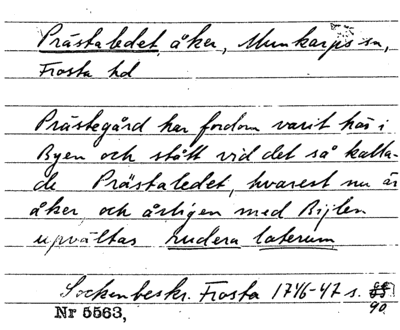 Prästaledet, åker, Munkarps sn,
Frosta hd
Prästegård har fordom varit här i
Byen och stått vid det så kalla-
de Prästaledet, hvarest nu är
åker, och årligen med Bijlen
upvältas rudera laterum
Sockenbeskr. Frosta 1746-47 s.
90.
Nr 5563,